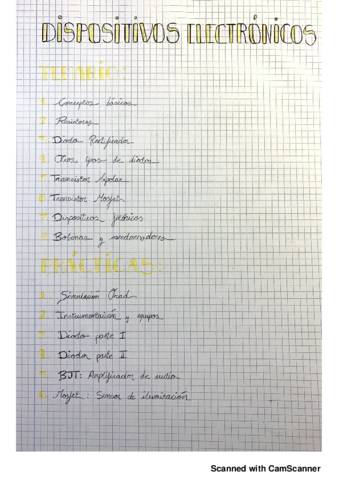 DISPOSITIVOS ELECTRÓNICOS
TEMARIO:
1. Conceptos básicos
2. Resistores
3. Diodo Rectificador
4. Otros tipos de diodos
5. Transistor bipolar
6. Transistor Mosfet
7. Dispositivos
8. Bobinas y
PRÁCTICAS:
1. Simulación Orcad
2. Instrumentación y equipos
3. Diodos parte I
4. Diodos parte II
5. BJT: Amplificador de audio
6. Mosfet: Sensor de iluminación
Scanned with CamScanner